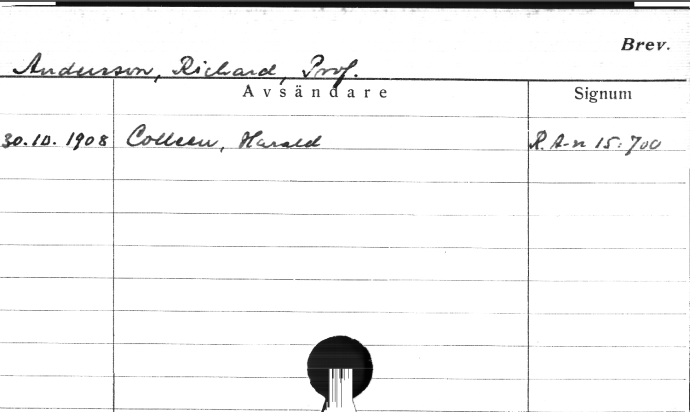 Brev.
Andersson, Richard, Prof.
Avsändare Signum
30.10.1908 Colleen, Harald R. A-n 15:700